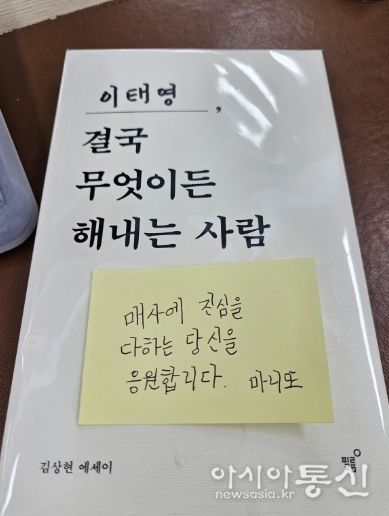 이태영,
결국
무엇이든
해내는 사람
매사에 진심을
다하는 당신을
응원합니다. 마니또
김상현 에세이
필름
아시아통신
newsasia.kr